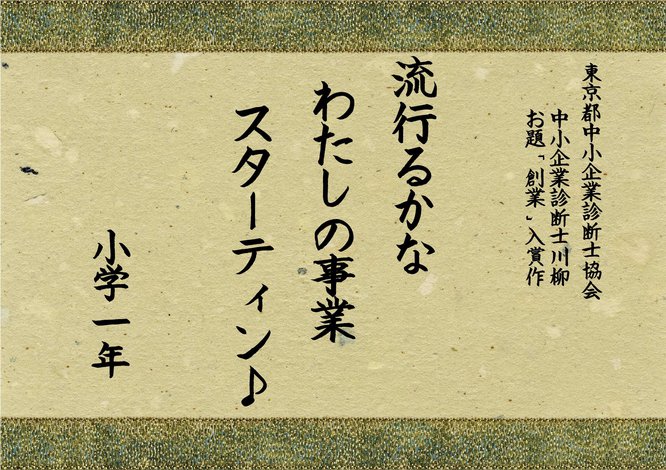 東京都中小企業診断士協会
中小企業診断士川柳
お題「創業」入賞作
流行るかな
わたしの事業
スターティン♪
小学一年